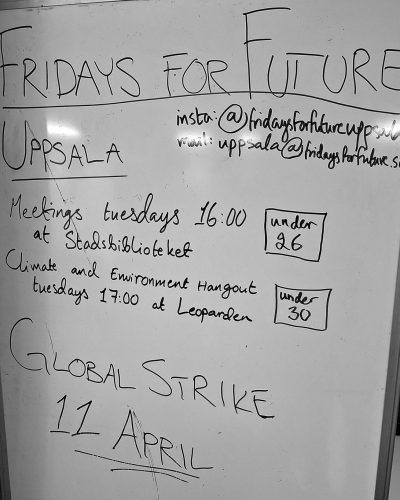 FRIDAYS FOR FUTURE
insta: @fridaysforfutureuppsal
mail: uppsala@fridaysforfuture.s
UPPSALA
Meetings tuesdays 16:00
at Stadsbiblioteket
under
26
Climate and Environment Hangout
tuesdays 17:00 at Leoparden
under
30
GLOBAL STRIKE
11 APRIL